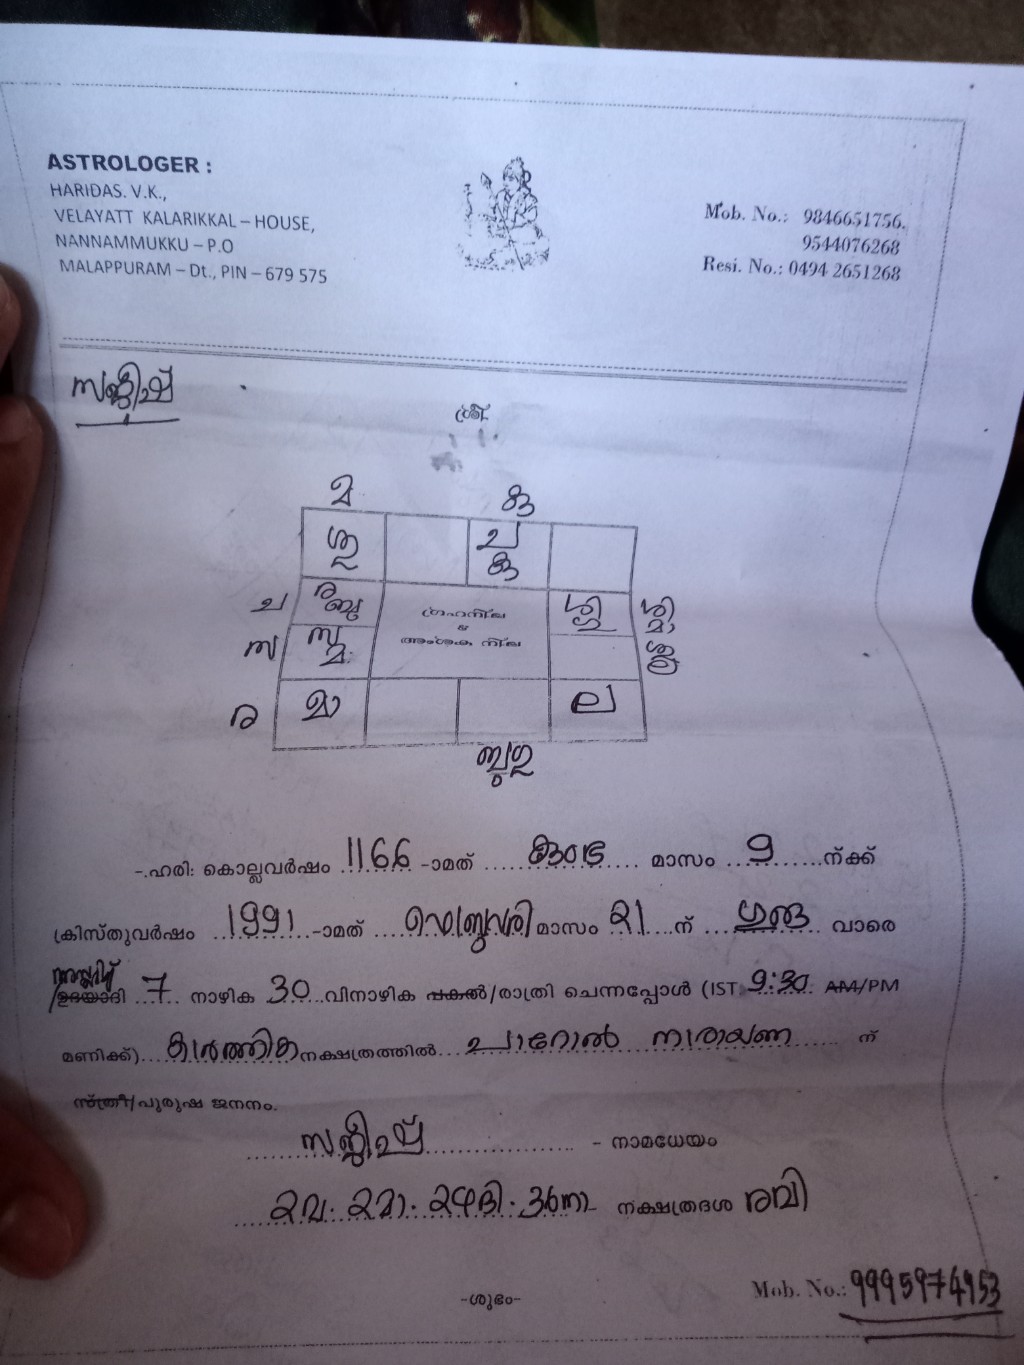 ASTROLOGER :
HARIDAS. V.K.,
VELAYATT KALARIKKAL – HOUSE,
NANNAMMUKKU – P.O
MALAPPURAM – Dt., PIN – 679 575
Mob. No.: 9846651756,
9544076268
Resi. No.: 0494 2651268
സജീഷ്
ശ്രീ:
മ കു
ശു ച കു
ച ര ബു ഗ്രഹനില ശി
സ സ മ അംശക നില മാ
ര മാ ല
ബുഗു
-.ഹരി: കൊല്ലവർഷം 1166 -ാമത് കുംഭ മാസം 9 ന്ക്ക്
ക്രിസ്തുവർഷം 1991 -ാമത് ഫെബ്രുവരി മാസം 21 ന് ഗുരു വാരെ
അസ്തമിച്ച്
/ഉദയാദി 7 നാഴിക 30 വിനാഴിക പകൽ/രാത്രി ചെന്നപ്പോൾ (IST 9:30 AM/PM
മണിക്ക്) കാർത്തിക നക്ഷത്രത്തിൽ നാരായണ ന്
സ്ത്രീ/പുരുഷ ജനനം.
സജീഷ് - നാമധേയം
2വ. 2മാ. 24ദി. 36നാ നക്ഷത്രദശ രവി
Mob. No.: 9995974953
-ശുഭം-